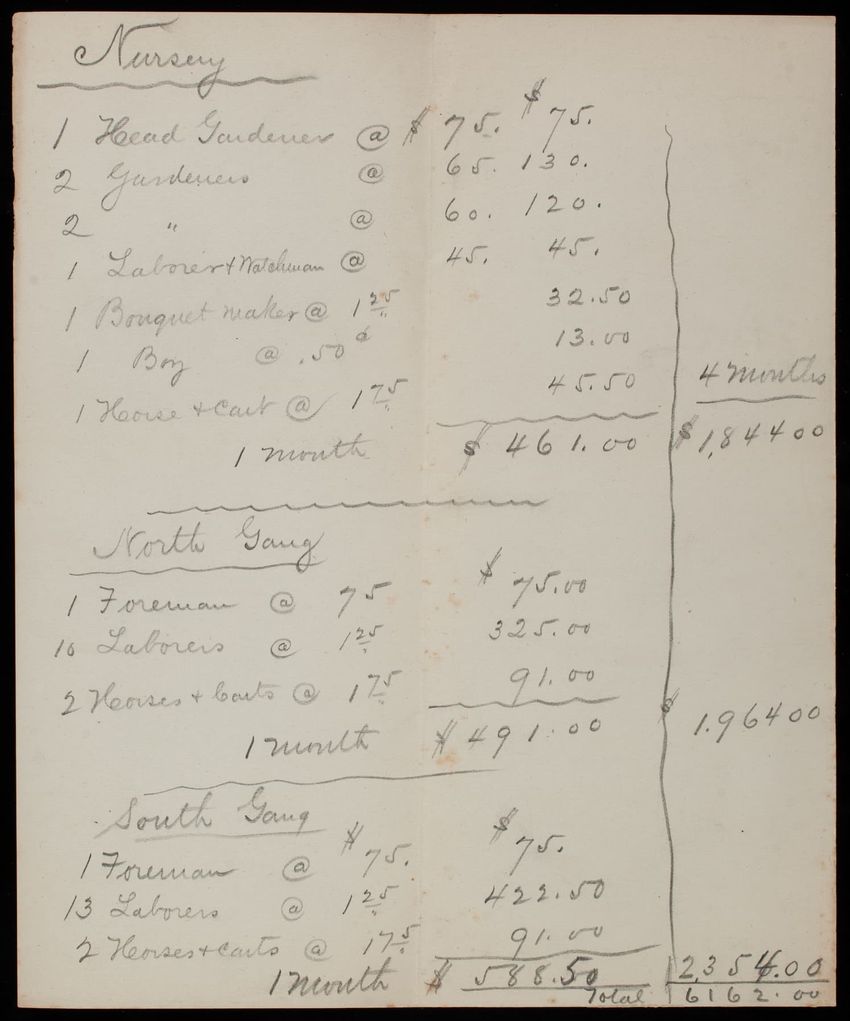 Nursery
1 Head Gardener @ $ 75. $ 75.
2 Gardeners @ 65. 130.
2 " @ 60. 120.
1 Laborer & Watchman @ 45. 45.
1 Bouquet maker @ 1 25 32.50
1 Boy @ .50 ¢ 13.00
1 Horse & Cart @ 1 75 45.50 4 months
1 month $ 461.00 $ 1,844 00
North Gang
1 Foreman @ 75 $ 75.00
10 Laborers @ 1 25 325.00
2 Horses & Carts @ 1 75 91.00
1 month $ 491.00 $ 1.964 00
South Gang
1 Foreman @ $ 75. $ 75.
13 Laborers @ 1 25 422.50
2 Horses & Carts @ 1 75 91.00
1 month $ 588.50 2,354.00
Total 6162.00